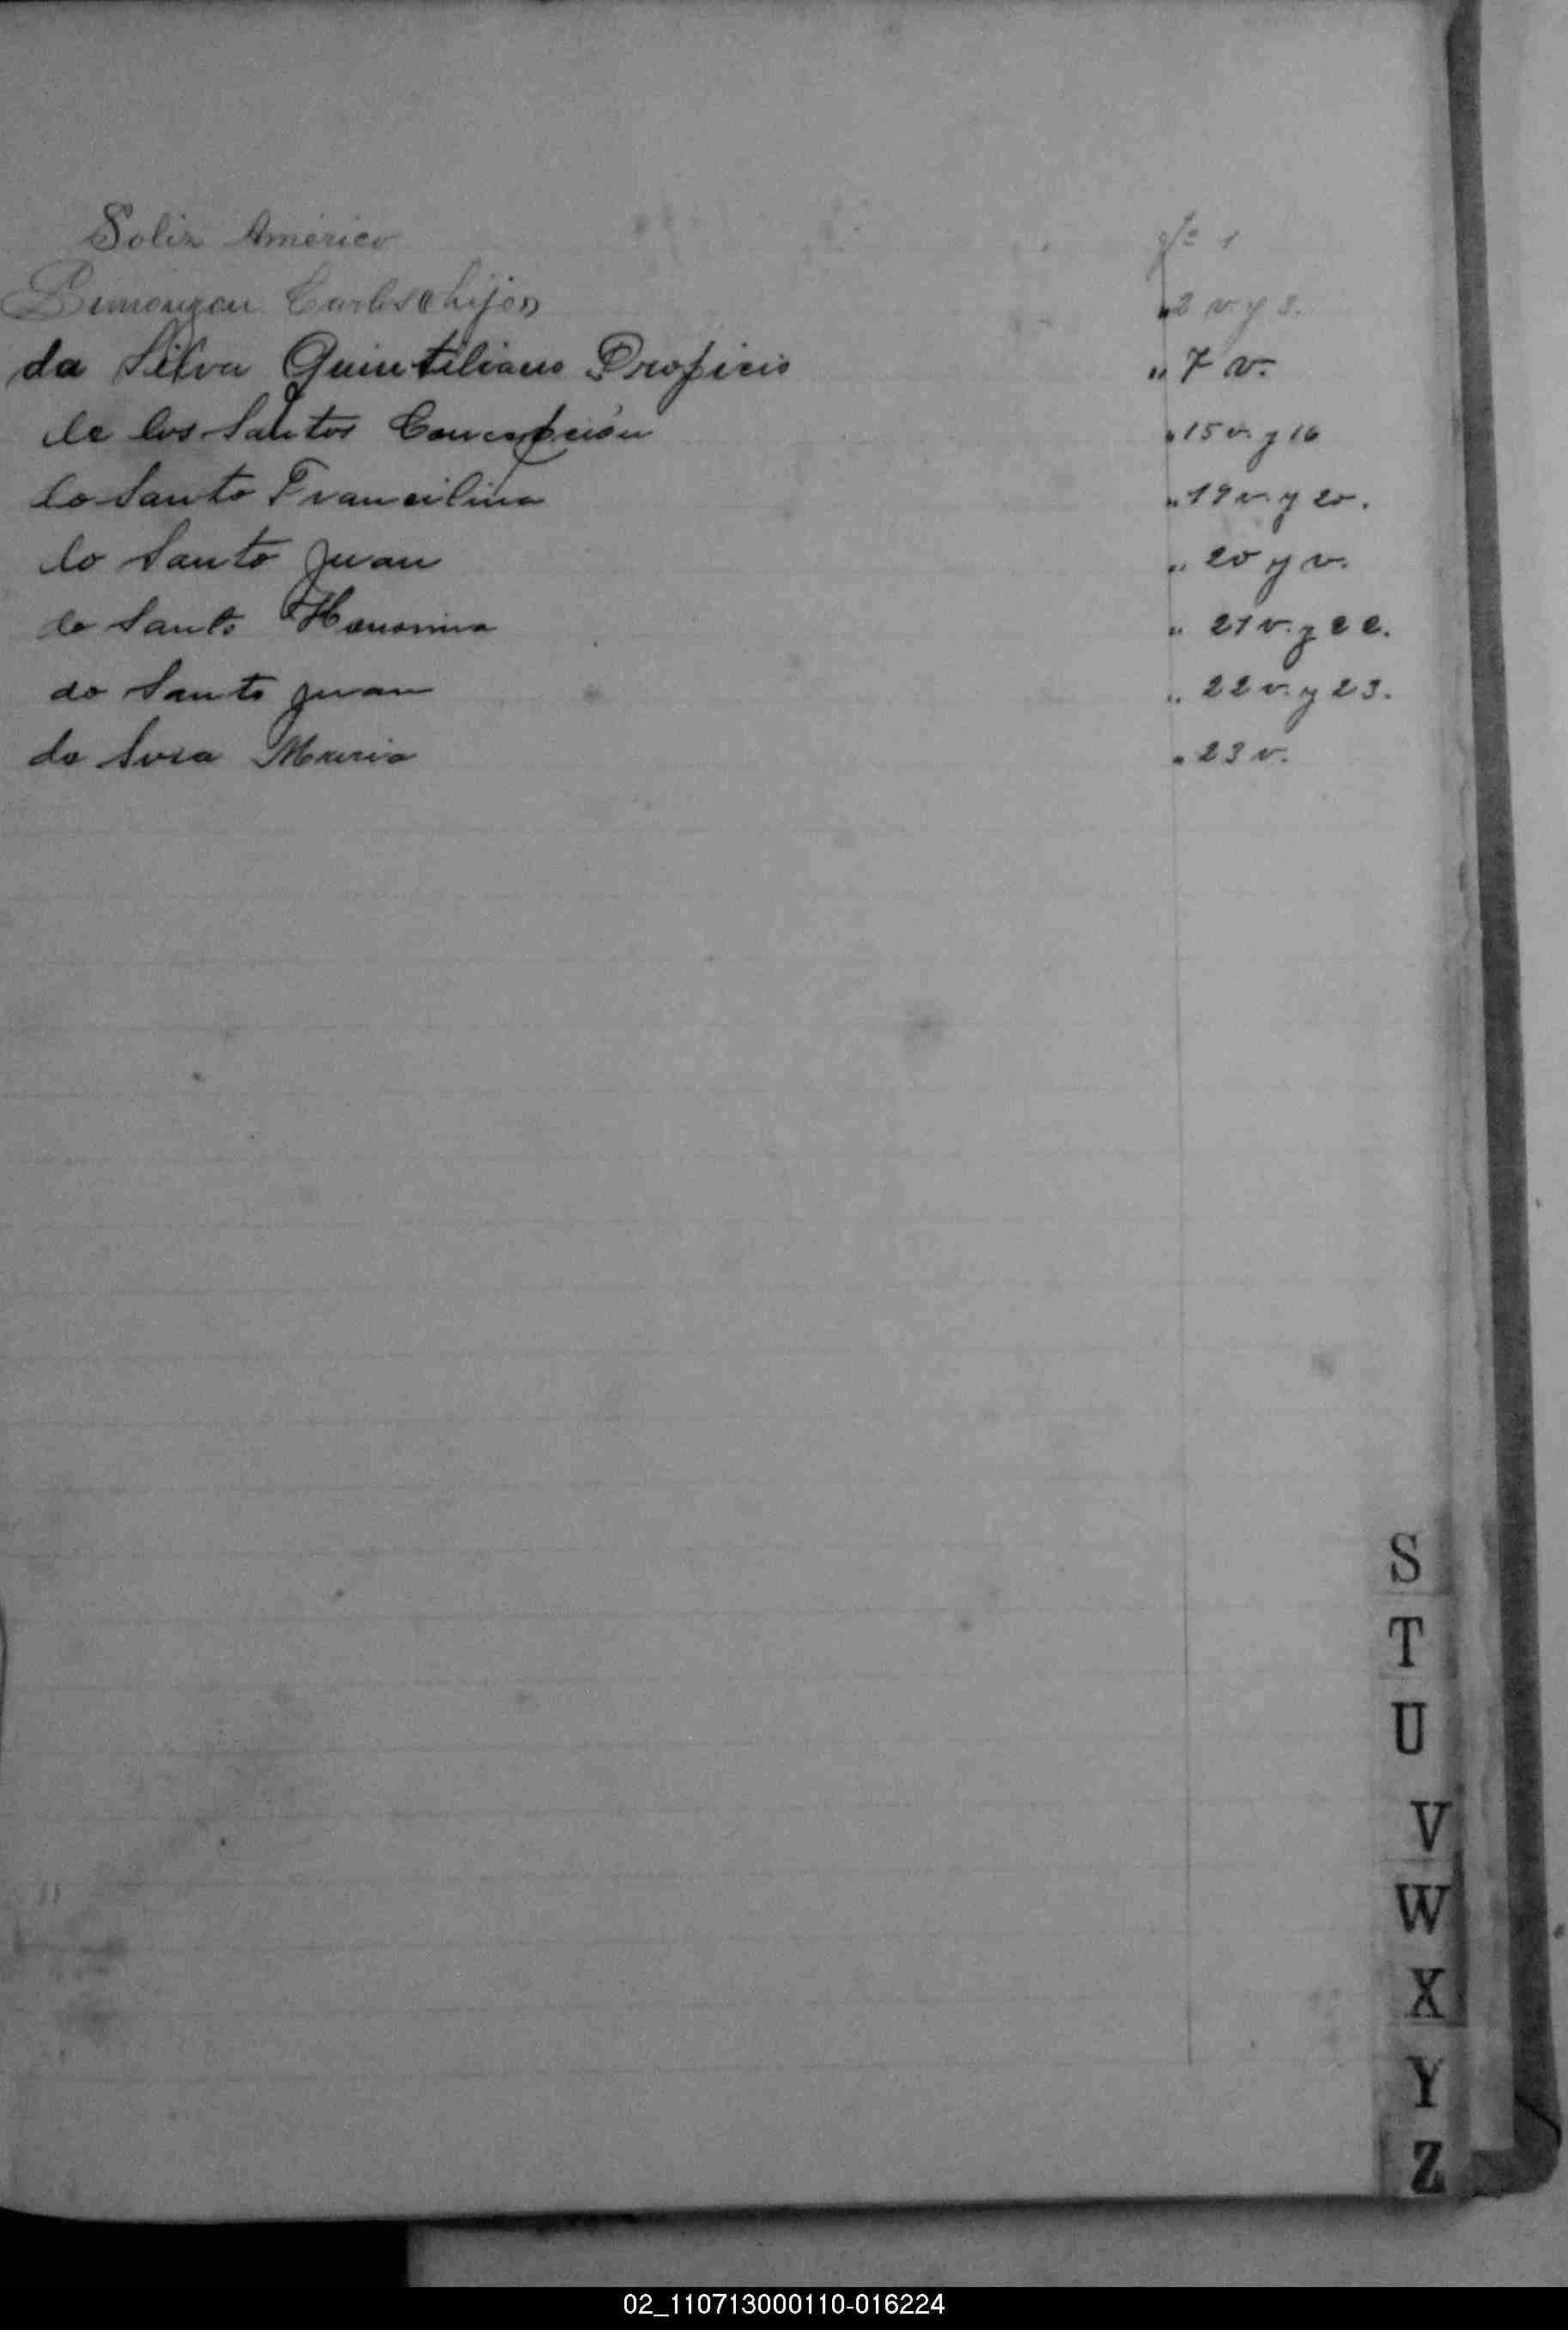 Soliz Américo fo 1
Simonzon Carlos (hijo) " 2 v. y 3.
da Silva Quintiliano Proficio " 7 v.
de los Santos Concepción " 15 v. y 16
do Santo Francilina " 19 v. y 20.
do Santo Juan " 20 y v.
do Santo " 21 v. y 22.
do Santo Juan " 22 v. y 23.
da Sosa Maria " 23 v.
S
T
U
V
W
X
Y
Z
02_110713000110-016224